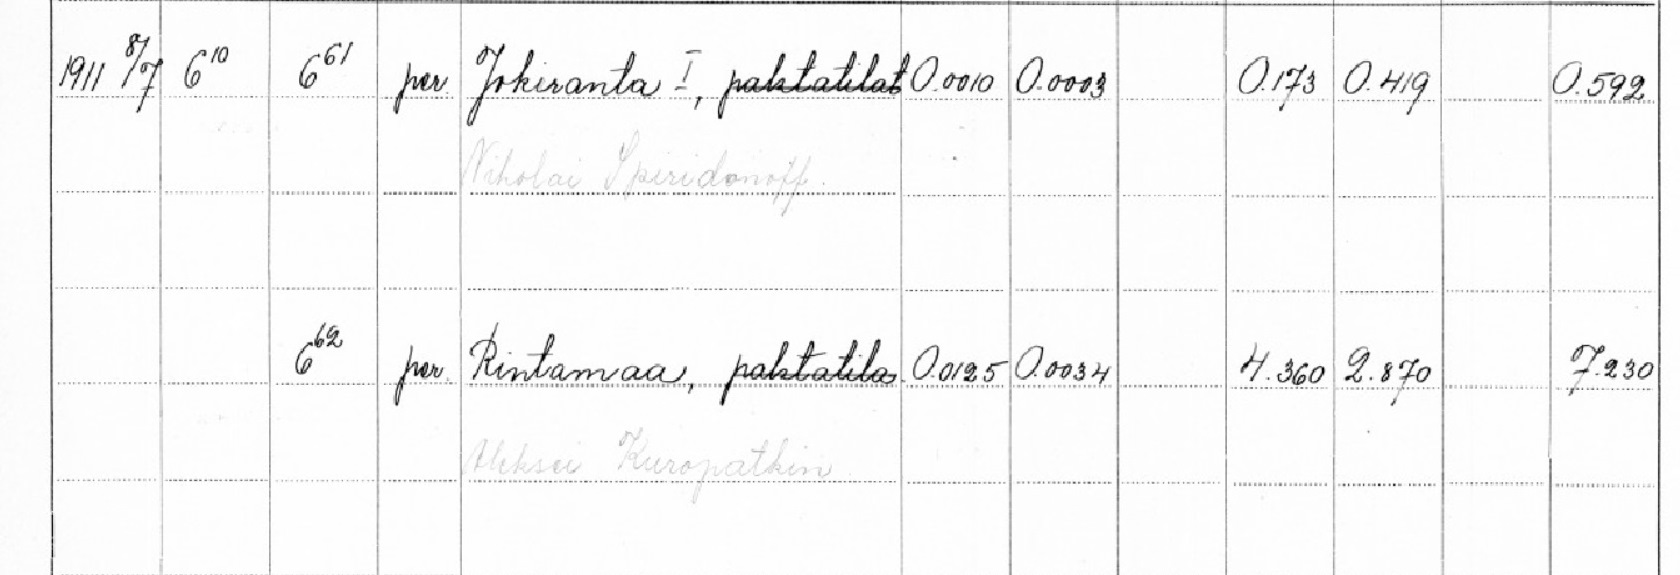 1911 8/7 6¹⁰ 6⁶¹ per. Jokiranta I, pahtatilat 0.0010 0.0003 0.173 0.419 0.592
Nikolai Spiridonoff.
6⁶² per. Rintamaa, pahtatila 0.0125 0.0034 4.360 2.870 7.230
Aleksei Kuropatkin.